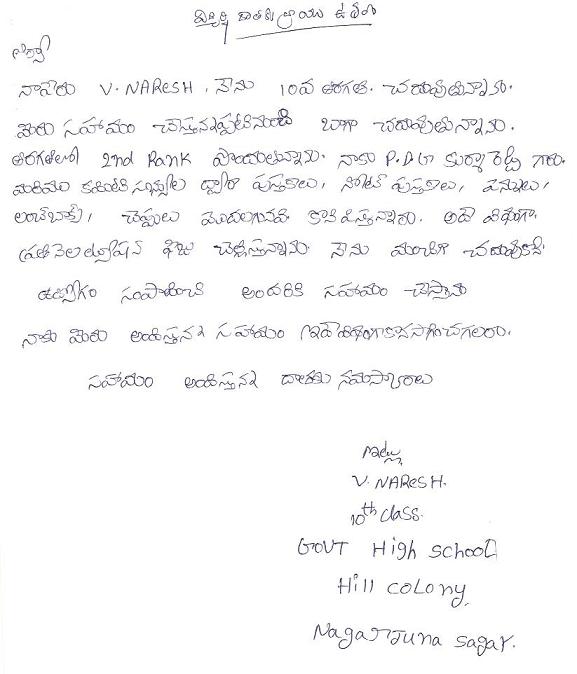 విద్యార్థి దాతకు వ్రాయు ఉత్తరం
నాపేరు V. NAResH. నేను 10వ తరగతి. చదువుతున్నాను.
మీరు సహాయం చేస్తున్నప్పటినుండి బాగా చదువుతున్నాను.
తరగతిలో 2nd Rank పొందుతున్నాను. నాకు P.D గారు కుర్మారెడ్డి గారు.
మరియు కమిటీ సభ్యుల ద్వారా పుస్తకాలు, నోట్ పుస్తకాలు, పెన్నులు,
లంచ్‌బాక్స్, చెప్పులు మొదలుగునవి కొనిపిస్తున్నారు. అదే విధంగా
ప్రతినెల ట్యూషన్ ఫీజు చెల్లిస్తున్నాను. నేను మంచిగా చదువుకొని.
ఉద్యోగం సంపాదించి అందరికి సహాయం చేస్తాను
నాకు మీరు అందిస్తున్న సహాయం ఇదేవిధంగా కొనసాగించగలరు.
సహాయం అందిస్తున్న దాతకు నమస్కారాలు
ఇట్లు
V. NAResH.
10th class.
GOVT High school
Hill colony,
Nagarjuna sagar.